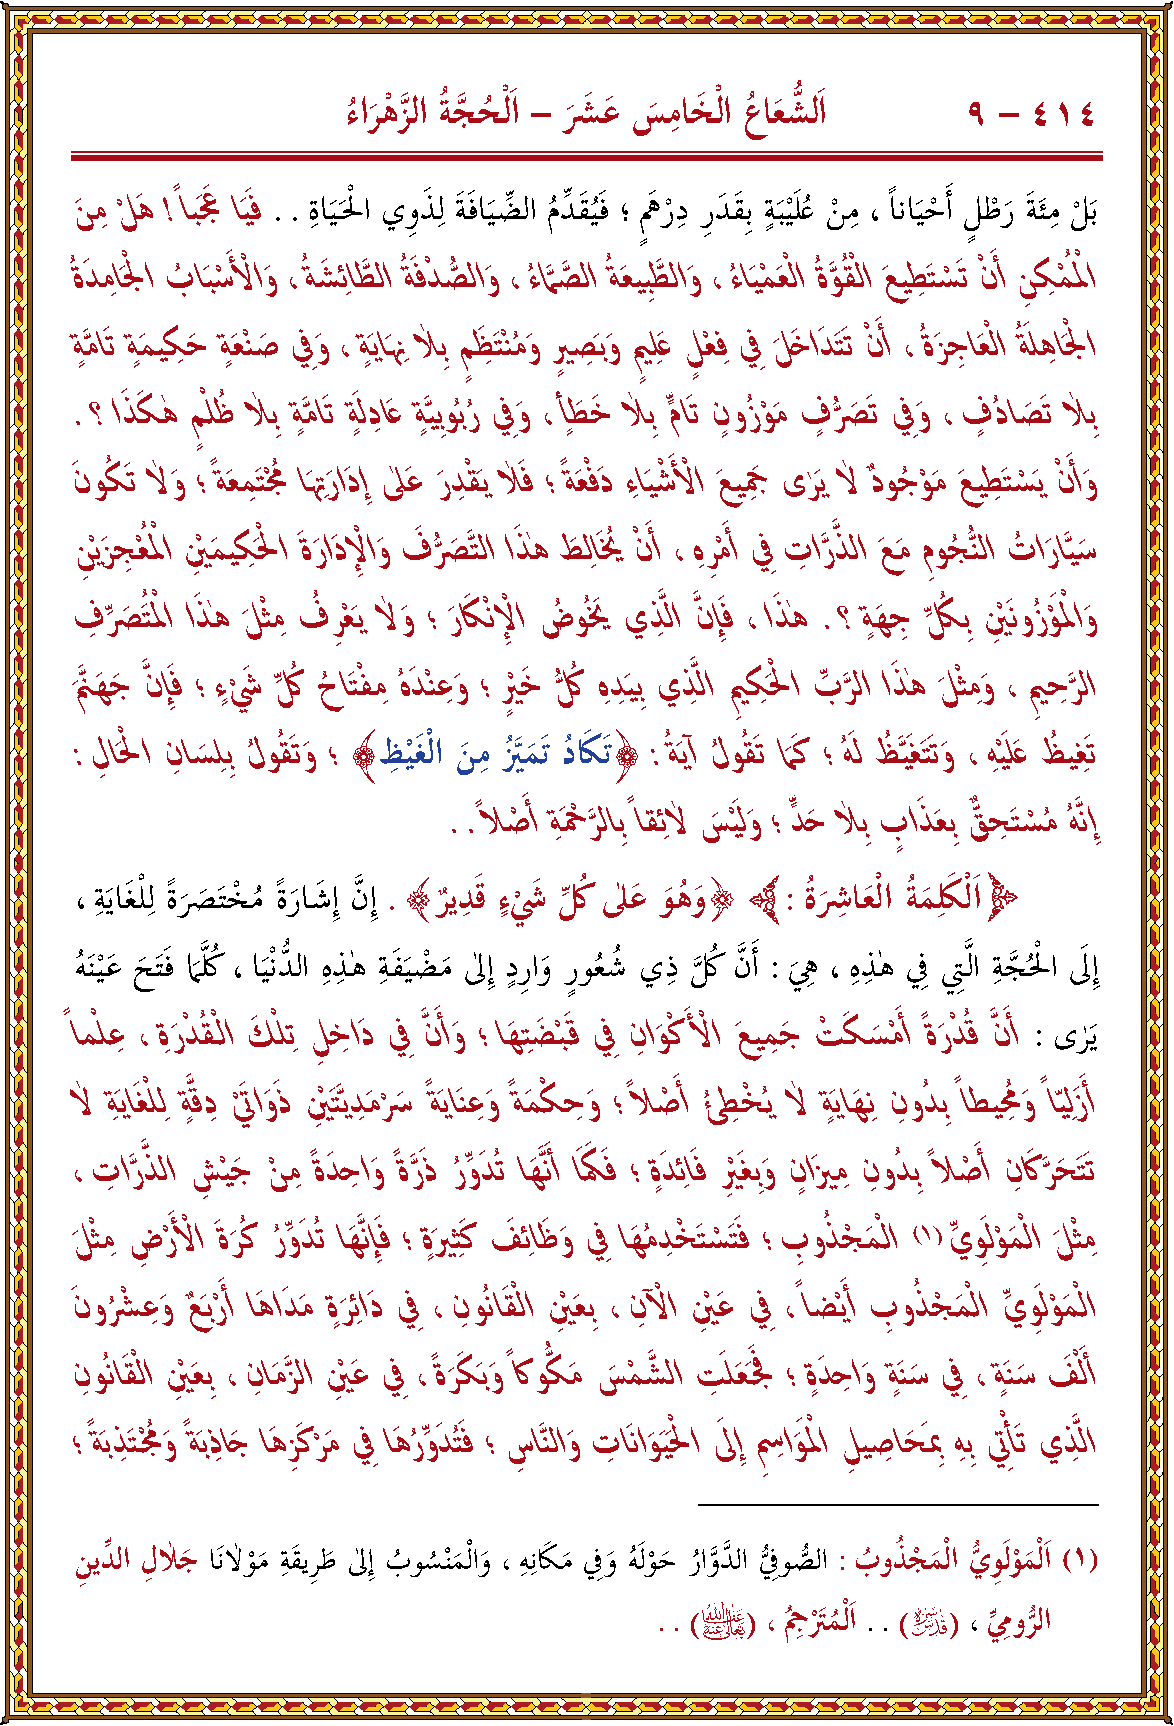 ٤١٤ – ٩ اَلشُّعَاعُ الْخَامِسَ عَشَرَ – اَلْحُجَّةُ الزَّهْرَاءُ
بَلْ مِئَةَ رَطْلٍ أَحْيَاناً ، مِنْ عُلَيْبَةٍ بِقَدَرِ دِرْهَمٍ ؛ فَيُقَدِّمُ الضِّيَافَةَ لِذَوِي الْحَيَاةِ . . فَيَا عَجَباً ! هَلْ مِنَ
الْمُمْكِنِ أَنْ تَسْتَطِيعَ الْقُوَّةُ الْعَمْيَاءُ ، وَالطَّبِيعَةُ الصَّمَّاءُ ، وَالصُّدْفَةُ الطَّائِشَةُ ، وَالْأَسْبَابُ الْجَامِدَةُ
الْجَاهِلَةُ الْعَاجِزَةُ ، أَنْ تَتَدَاخَلَ فِي فِعْلٍ عَلِيمٍ وَبَصِيرٍ وَمُنْتَظَمٍ بِلاٰ نِهَايَةٍ ، وَفِي صَنْعَةٍ حَكِيمَةٍ تَامَّةٍ
بِلاٰ تَصَادُفٍ ، وَفِي تَصَرُّفٍ مَوْزُونٍ تَامٍّ بِلاٰ خَطَأٍ ، وَفِي رُبُوبِيَّةٍ عَادِلَةٍ تَامَّةٍ بِلاٰ ظُلْمٍ هٰكَذَا ؟ .
وَأَنْ يَسْتَطِيعَ مَوْجُودٌ لاٰ يَرٰى جَمِيعَ الْأَشْيَاءِ دَفْعَةً ؛ فَلاٰ يَقْدِرَ عَلٰى إِدَارَتِهَا مُجْتَمِعَةً ؛ وَلاٰ تَكُونَ
سَيَّارَاتُ النُّجُومِ مَعَ الذَّرَّاتِ فِي أَمْرِهِ ، أَنْ يُخَالِطَ هٰذَا التَّصَرُّفَ وَالْإِدَارَةَ الْحَكِيمَيْنِ الْمُعْجِزَيْنِ
وَالْمَوْزُونَيْنِ بِكُلِّ جِهَةٍ ؟ . هٰذَا ، فَإِنَّ الَّذِي يَخُوضُ الْإِنْكَارَ ؛ وَلاٰ يَعْرِفُ مِثْلَ هٰذَا الْمُتَصَرِّفِ
الرَّحِيمِ ، وَمِثْلَ هٰذَا الرَّبِّ الْحَكِيمِ الَّذِي بِيَدِهِ كُلُّ خَيْرٍ ؛ وَعِنْدَهُ مِفْتَاحُ كُلِّ شَيْءٍ ؛ فَإِنَّ جَهَنَّمَ
تَغِيظُ عَلَيْهِ ، وَتَتَغَيَّظُ لَهُ ؛ كَمَا تَقُولُ آيَةُ : ﴿تَكَادُ تَمَيَّزُ مِنَ الْغَيْظِ﴾ ؛ وَتَقُولُ بِلِسَانِ الْحَالِ :
إِنَّهُ مُسْتَحِقٌّ بِعَذَابٍ بِلاٰ حَدٍّ ؛ وَلَيْسَ لاٰئِقاً بِالرَّحْمَةِ أَصْلاً . .
اَلْكَلِمَةُ الْعَاشِرَةُ : ﴿وَهُوَ عَلٰى كُلِّ شَيْءٍ قَدِيرٌ﴾ . إِنَّ إِشَارَةً مُخْتَصَرَةً لِلْغَايَةِ ،
إِلَى الْحُجَّةِ الَّتِي فِي هٰذِهِ ، هِيَ : أَنَّ كُلَّ ذِي شُعُورٍ وَارِدٍ إِلٰى مَضْيَفَةِ هٰذِهِ الدُّنْيَا ، كُلَّمَا فَتَحَ عَيْنَهُ
يَرٰى : أَنَّ قُدْرَةً أَمْسَكَتْ جَمِيعَ الْأَكْوَانِ فِي قَبْضَتِهَا ؛ وَأَنَّ فِي دَاخِلِ تِلْكَ الْقُدْرَةِ ، عِلْماً
أَزَلِيّاً وَمُحِيطاً بِدُونِ نِهَايَةٍ لاٰ يُخْطِئُ أَصْلاً ؛ وَحِكْمَةً وَعِنَايَةً سَرْمَدِيَّتَيْنِ ذَوَاتَيْ دِقَّةٍ لِلْغَايَةِ لاٰ
تَتَحَرَّكَانِ أَصْلاً بِدُونِ مِيزَانٍ وَبِغَيْرِ فَائِدَةٍ ؛ فَكَمَا أَنَّهَا تُدَوِّرُ ذَرَّةً وَاحِدَةً مِنْ جَيْشِ الذَّرَّاتِ ،
مِثْلَ الْمَوْلَوِيِّ (١) الْمَجْذُوبِ ؛ فَتَسْتَخْدِمُهَا فِي وَظَائِفَ كَثِيرَةٍ ؛ فَإِنَّهَا تُدَوِّرُ كُرَةَ الْأَرْضِ مِثْلَ
الْمَوْلَوِيِّ الْمَجْذُوبِ أَيْضاً ، فِي عَيْنِ الْآنِ ، بِعَيْنِ الْقَانُونِ ، فِي دَائِرَةٍ مَدَاهَا أَرْبَعٌ وَعِشْرُونَ
أَلْفَ سَنَةٍ ، فِي سَنَةٍ وَاحِدَةٍ ؛ فَجَعَلَتِ الشَّمْسَ مَكُّوكاً وَبَكَرَةً ، فِي عَيْنِ الزَّمَانِ ، بِعَيْنِ الْقَانُونِ
الَّذِي تَأْتِي بِهِ بِمَحَاصِيلِ الْمَوَاسِمِ إِلَى الْحَيَوَانَاتِ وَالنَّاسِ ؛ فَتُدَوِّرُهَا فِي مَرْكَزِهَا جَاذِبَةً وَمُجْتَذِبَةً ؛
(١) اَلْمَوْلَوِيُّ الْمَجْذُوبُ : الصُّوفِيُّ الدَّوَّارُ حَوْلَهُ وَفِي مَكَانِهِ ، وَالْمَنْسُوبُ إِلٰى طَرِيقَةِ مَوْلاٰنَا جَلاٰلِ الدِّينِ
الرُّومِيِّ ، (قدس سره) . . اَلْمُتَرْجِمُ ، (رضي الله تعالى عنه) . .